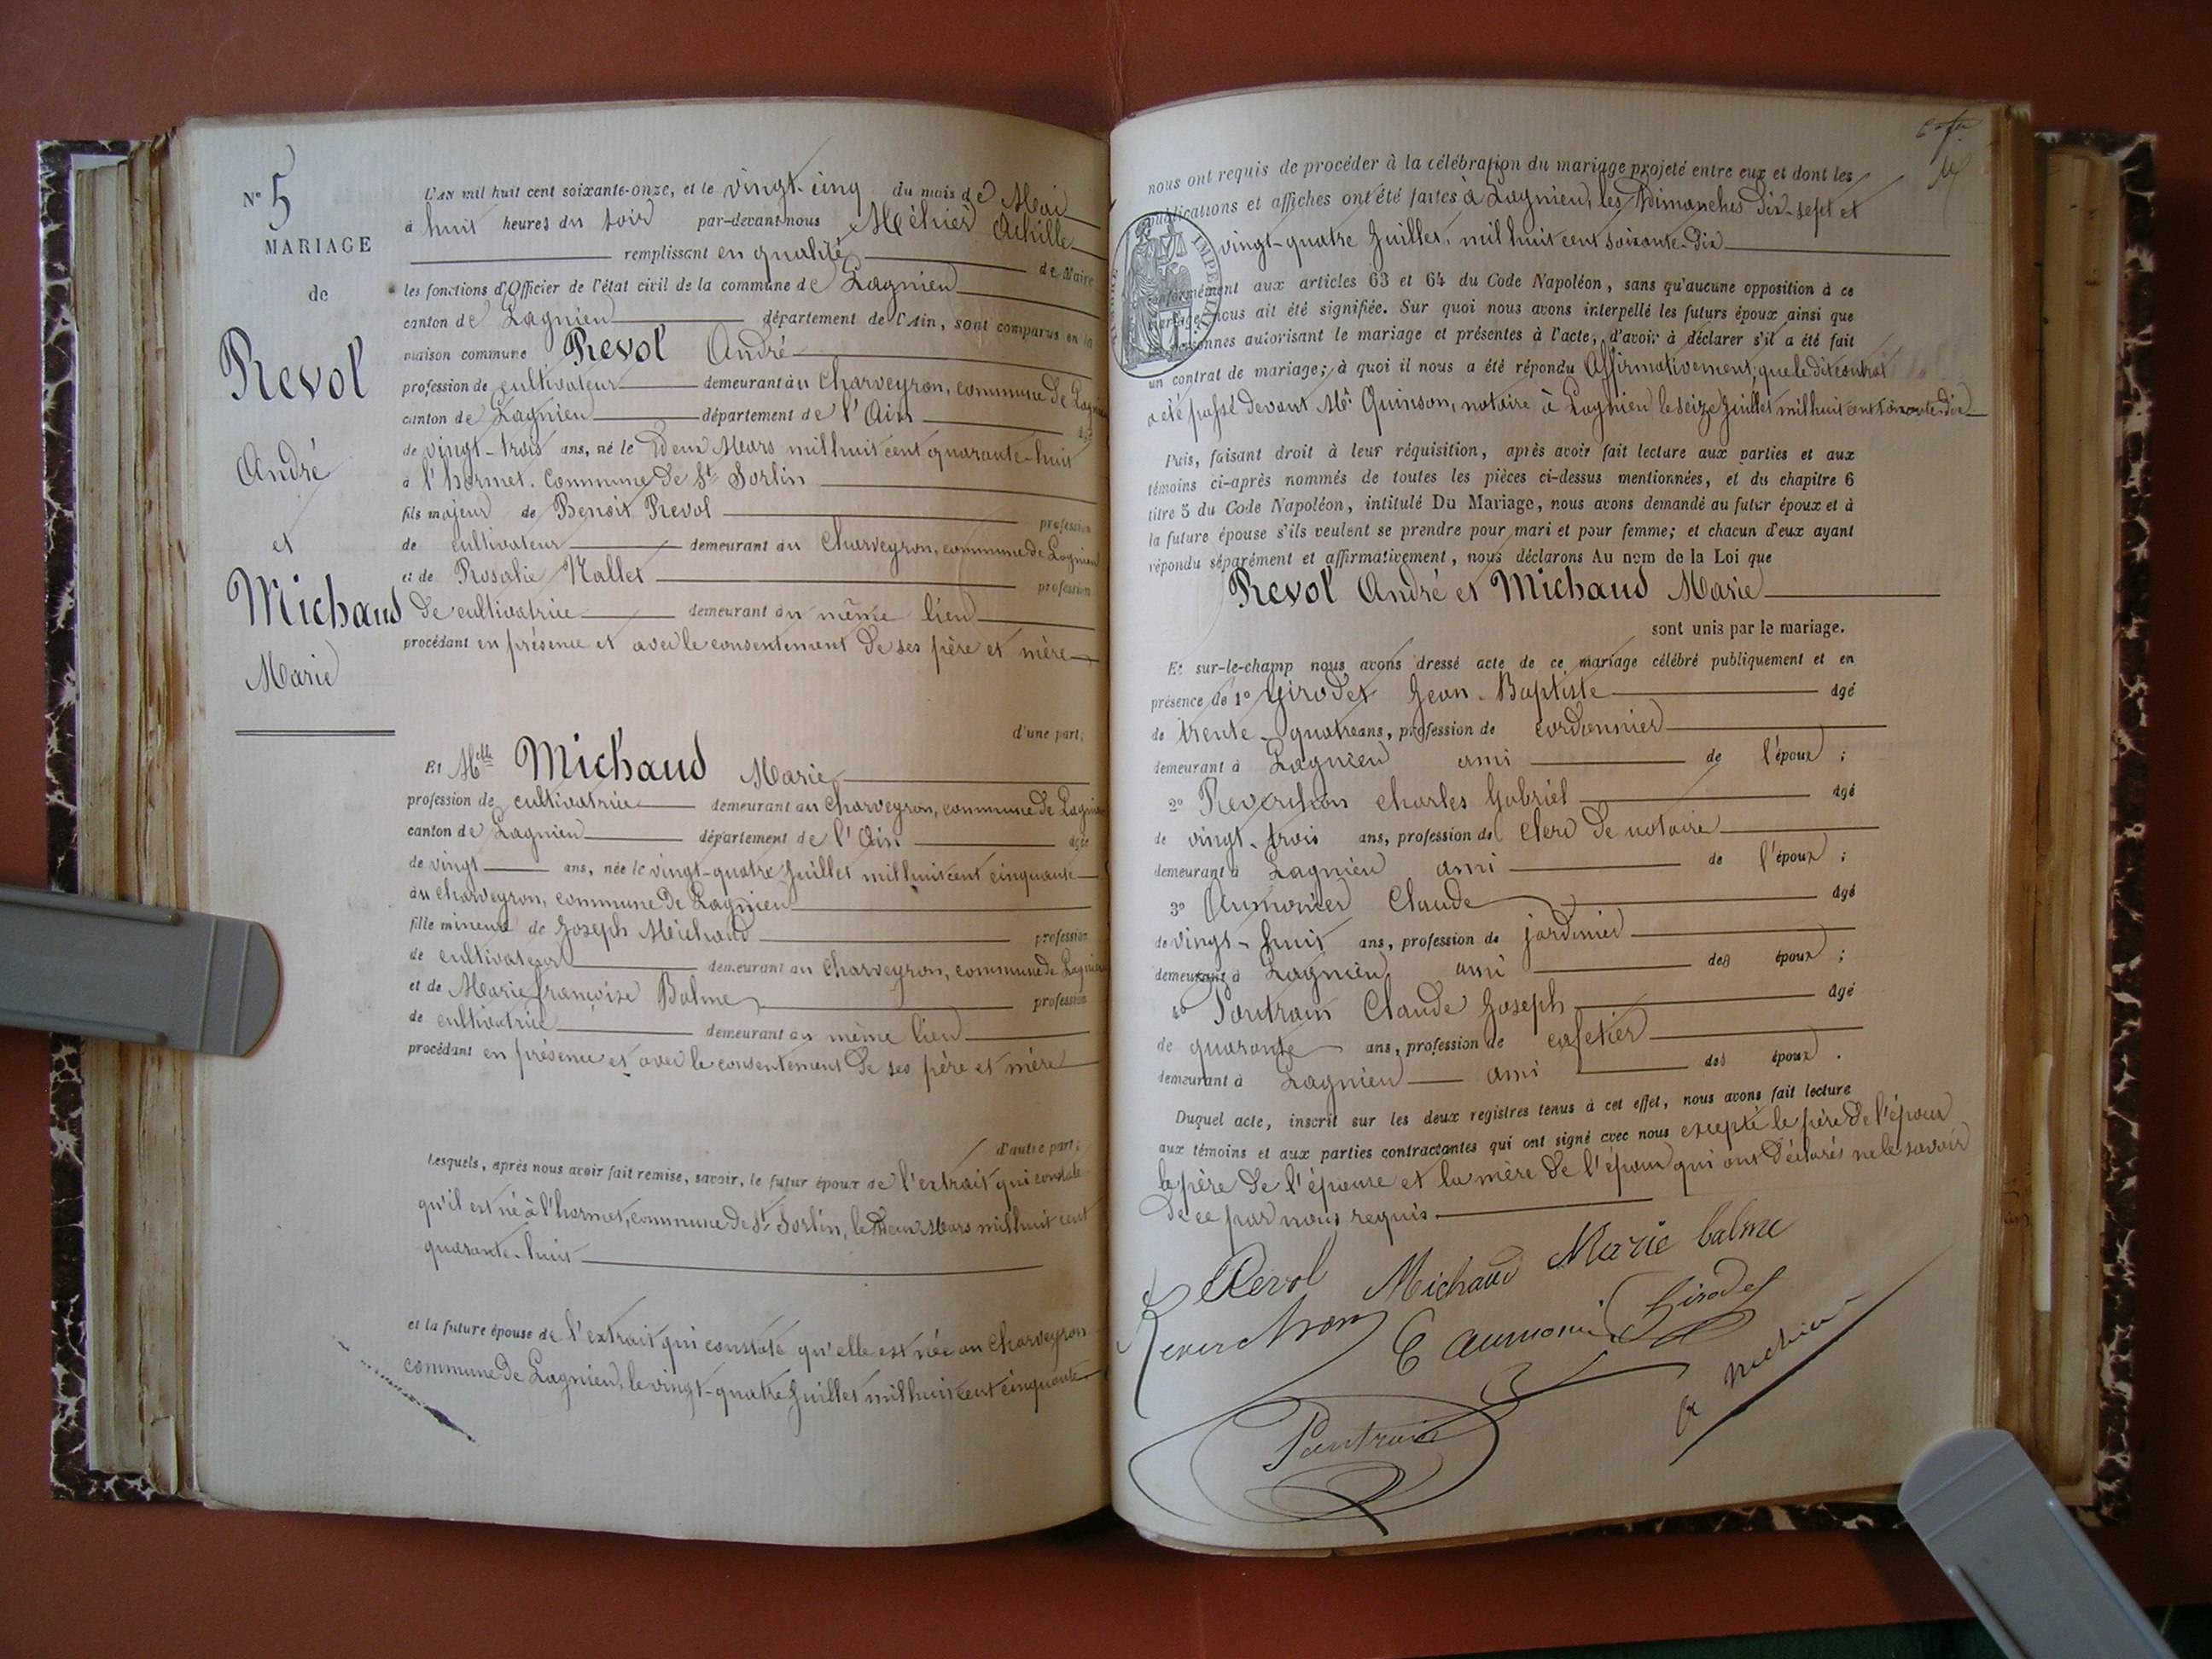 N° 5
MARIAGE
de
Revol
André
et
Michaud
Marie
L'AN mil huit cent soixante-onze, et le vingt-cinq du mois de Mai
à huit heures du soir par-devant-nous Méhier Achille
remplissant en qualité de Maire
les fonctions d'Officier de l'état civil de la commune de Lagnieu
canton de Lagnieu département de l'Ain, sont comparus en la
maison commune Revol André
profession de cultivateur demeurant au Charveyron, commune de Lagnieu
canton de Lagnieu département de l'Ain âgé
de vingt-trois ans, né le deux Mars mil huit cent quarante-huit
à l'hormet, Commune de St Sorlin
fils majeur de Benoit Revol profession
de cultivateur demeurant au Charveyron, commune de Lagnieu
et de Rosalie Nallet profession
de cultivatrice demeurant au même lieu
procédant en présence et avec le consentement de ses père et mère
d'une part;
Et Melle Michaud Marie
profession de cultivatrice demeurant au Charveyron, commune de Lagnieu
canton de Lagnieu département de l'Ain âgée
de vingt ans, née le vingt-quatre Juillet mil huit cent cinquante
au Charveyron, commune de Lagnieu
fille mineure de Joseph Michaud profession
de cultivateur demeurant au Charveyron, commune de Lagnieu
et de Marie françoise Balme profession
de cultivatrice demeurant au même lieu
procédant en présence et avec le consentement de ses père et mère
d'autre part;
Lesquels, après nous avoir fait remise, savoir, le futur époux de l'extrait qui constate
qu'il est né à l'hormet, commune de St Sorlin, le deux Mars mil huit cent
quarante-huit
et la future épouse de l'extrait qui constate qu'elle est née au Charveyron
commune de Lagnieu, le vingt-quatre Juillet mil huit cent cinquante
nous ont requis de procéder à la célébration du mariage projeté entre eux et dont les
publications et affiches ont été faites à Lagnieu, les Dimanches dix-sept et
vingt-quatre Juillet, mil huit cent soixante-dix
conformément aux articles 63 et 64 du Code Napoléon, sans qu'aucune opposition à ce
mariage nous ait été signifiée. Sur quoi nous avons interpellé les futurs époux ainsi que
les personnes autorisant le mariage et présentes à l'acte, d'avoir à déclarer s'il a été fait
un contrat de mariage; à quoi il nous a été répondu Affirmativement; que le dit contrat
a été passé devant Me Quinson, notaire à Lagnieu le seize Juillet mil huit cent soixante-dix
Puis, faisant droit à leur réquisition, après avoir fait lecture aux parties et aux
témoins ci-après nommés de toutes les pièces ci-dessus mentionnées, et du chapitre 6
titre 5 du Code Napoléon, intitulé Du Mariage, nous avons demandé au futur époux et à
la future épouse s'ils veulent se prendre pour mari et pour femme; et chacun d'eux ayant
répondu séparément et affirmativement, nous déclarons Au nom de la Loi que
Revol André et Michaud Marie
sont unis par le mariage.
Et sur-le-champ nous avons dressé acte de ce mariage célébré publiquement et en
présence de 1° Girodet Jean-Baptiste âgé
de trente-quatre ans, profession de cordonnier
demeurant à Lagnieu ami de l'époux;
2° Reverchon Charles Gabriel âgé
de vingt-trois ans, profession de clerc de notaire
demeurant à Lagnieu ami de l'époux;
3° Aumonier Claude âgé
de vingt-huit ans, profession de jardinier
demeurant à Lagnieu ami des époux;
4° Poutrain Claude Joseph âgé
de quarante ans, profession de cafetier
demeurant à Lagnieu ami des époux.
Duquel acte, inscrit sur les deux registres tenus à cet effet, nous avons fait lecture
aux témoins et aux parties contractantes qui ont signé avec nous excepté le père de l'époux
le père de l'épouse et la mère de l'époux qui ont déclaré ne le savoir
de ce par nous requis
Revol Michaud Marie balme
Reverchon C aumonier Girodet
Poutrain A Méhier